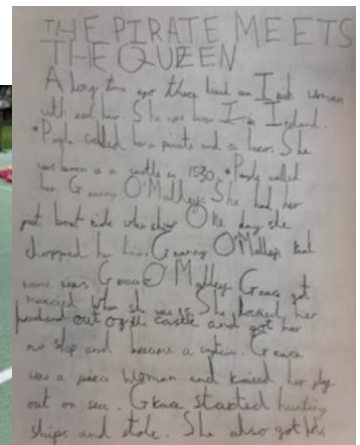 THE PIRATE MEETS
THE QUEEN
A long time ago there lived an Irish woman
with red hair. She was born In Ireland.
People called her a pirate and a hero. She
was born in a castle in 1530. People called
her Granny O'Malley. She had her
first boat ride when she One day she
chopped her hair. Granny O'Malleys real
name was Grace O'Malley. Grace got
married when she was 15. She locked her
husband out of the castle and got her
own ship and became a captain. Grace
was a woman and her
out on sea. Grace started hunting
ships and stole. She also got